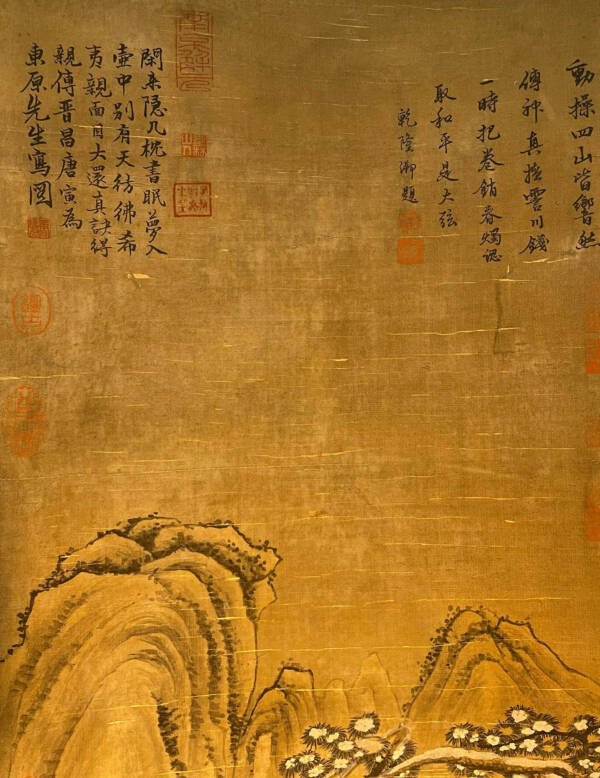 動操四山皆響然
傳神真霅川錢
一時把卷銷春燭認
取和平是大弦
乾隆御題
閑來隱几枕書眠夢入
壺中別有天彷彿希
夷親面目大還真訣得
親傳晉昌唐寅為
東原先生寫圖